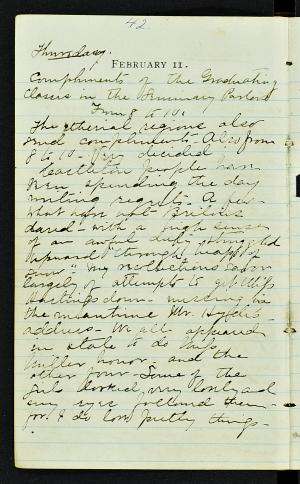 42.
Thursday.
FEBRUARY 11.
Compliments of the Graduating
Classes in the Seminary Parlors
From 8 to 10.
The etherial regions also
send compliments. Also from
8 to 10.
Carleton people have
been spending the day
writing regrets. A few
what have not Britons
dared with a high sense
of an awful duty
upward through
my recollections
largely of attempts to get Miss
Hastings down - missing in
the meantime Mr.
address. We all appeared
in state to do Miss
Miller honor. and the
other four - Some of the
girls looked very lovely and
my eyes followed them -
for I do love pretty things -